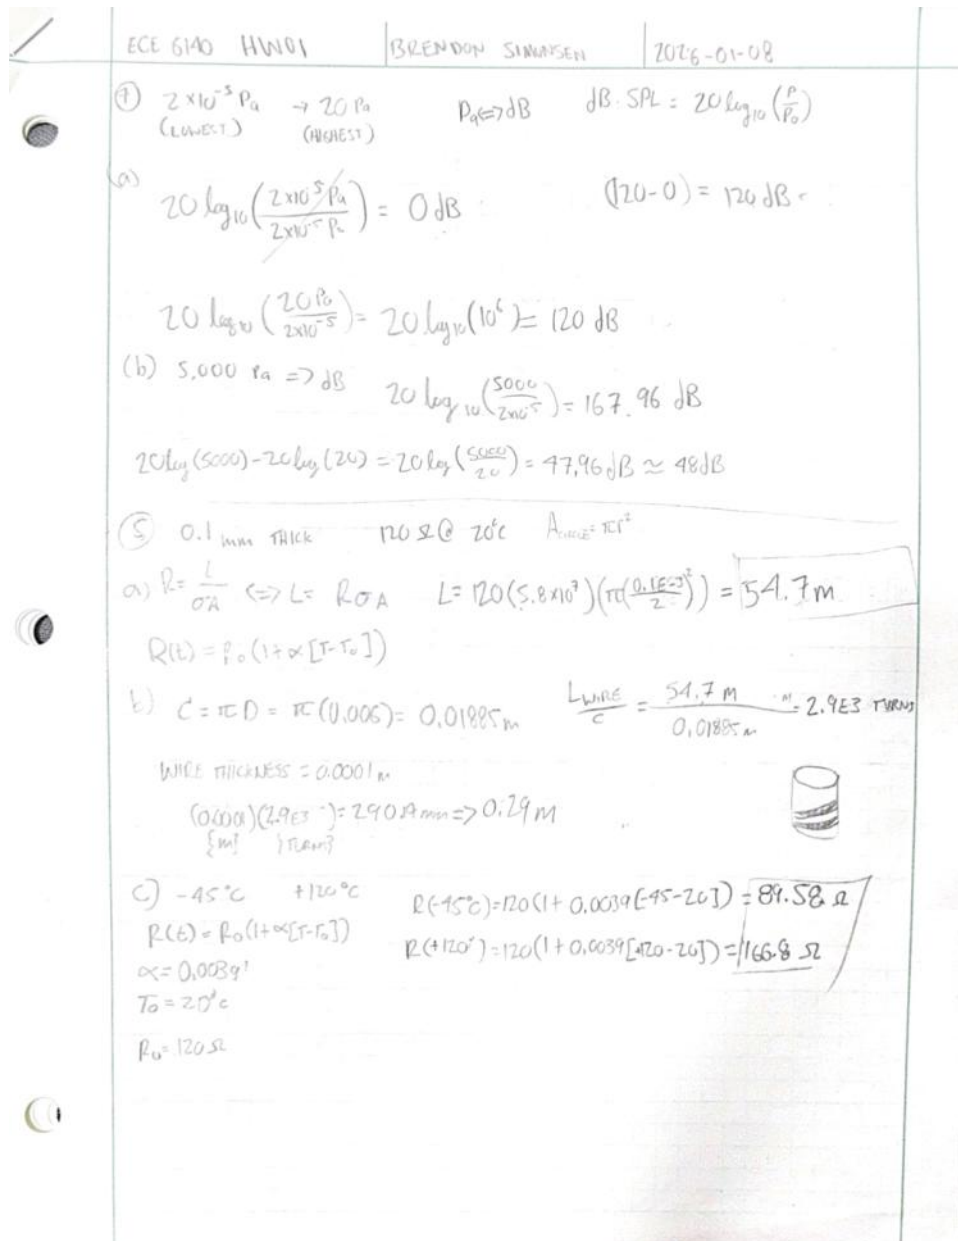 ECE 6140 HW01 BRENDON SIMONSEN 2026-01-08
⑦ 2×10⁻⁵ Pa → 20 Pa Pa<=>dB dB. SPL = 20 log₁₀ (P/P₀)
(LOWEST) (HIGHEST)
(a) 20 log₁₀ (2×10⁻⁵ Pa / 2×10⁻⁵ Pa) = 0 dB (120-0) = 120 dB
20 log₁₀ (20 Pa / 2×10⁻⁵) = 20 log₁₀ (10⁶) = 120 dB
(b) 5,000 Pa => dB 20 log₁₀ (5000 / 2×10⁻⁵) = 167.96 dB
20log (5000) - 20log (20) = 20log (5000/20) = 47.96 dB ≃ 48dB
⑤ 0.1 mm THICK 120 Ω @ 20°C A_CIRCLE = πr²
a) R = L/σA <=> L = RσA L = 120(5.8×10⁷)(π(0.1E-3/2)²) = 54.7 m
R(t) = R₀(1+α[T-T₀])
b) C = πD = π(0.006) = 0.01885 m L_WIRE/C = 54.7 m / 0.01885 m = 2.9E3 TURNS
WIRE THICKNESS = 0.0001 m
(0.0001)(2.9E3) = 290 mm => 0.29 m
{m} {TURNS}
c) -45°C +120°C R(-45°C) = 120(1 + 0.0039[-45-20]) = 89.58 Ω
R(t) = R₀(1+α[T-T₀]) R(+120°) = 120(1 + 0.0039[+120-20]) = 166.8 Ω
α = 0.0039
T₀ = 20°C
R₀ = 120 Ω